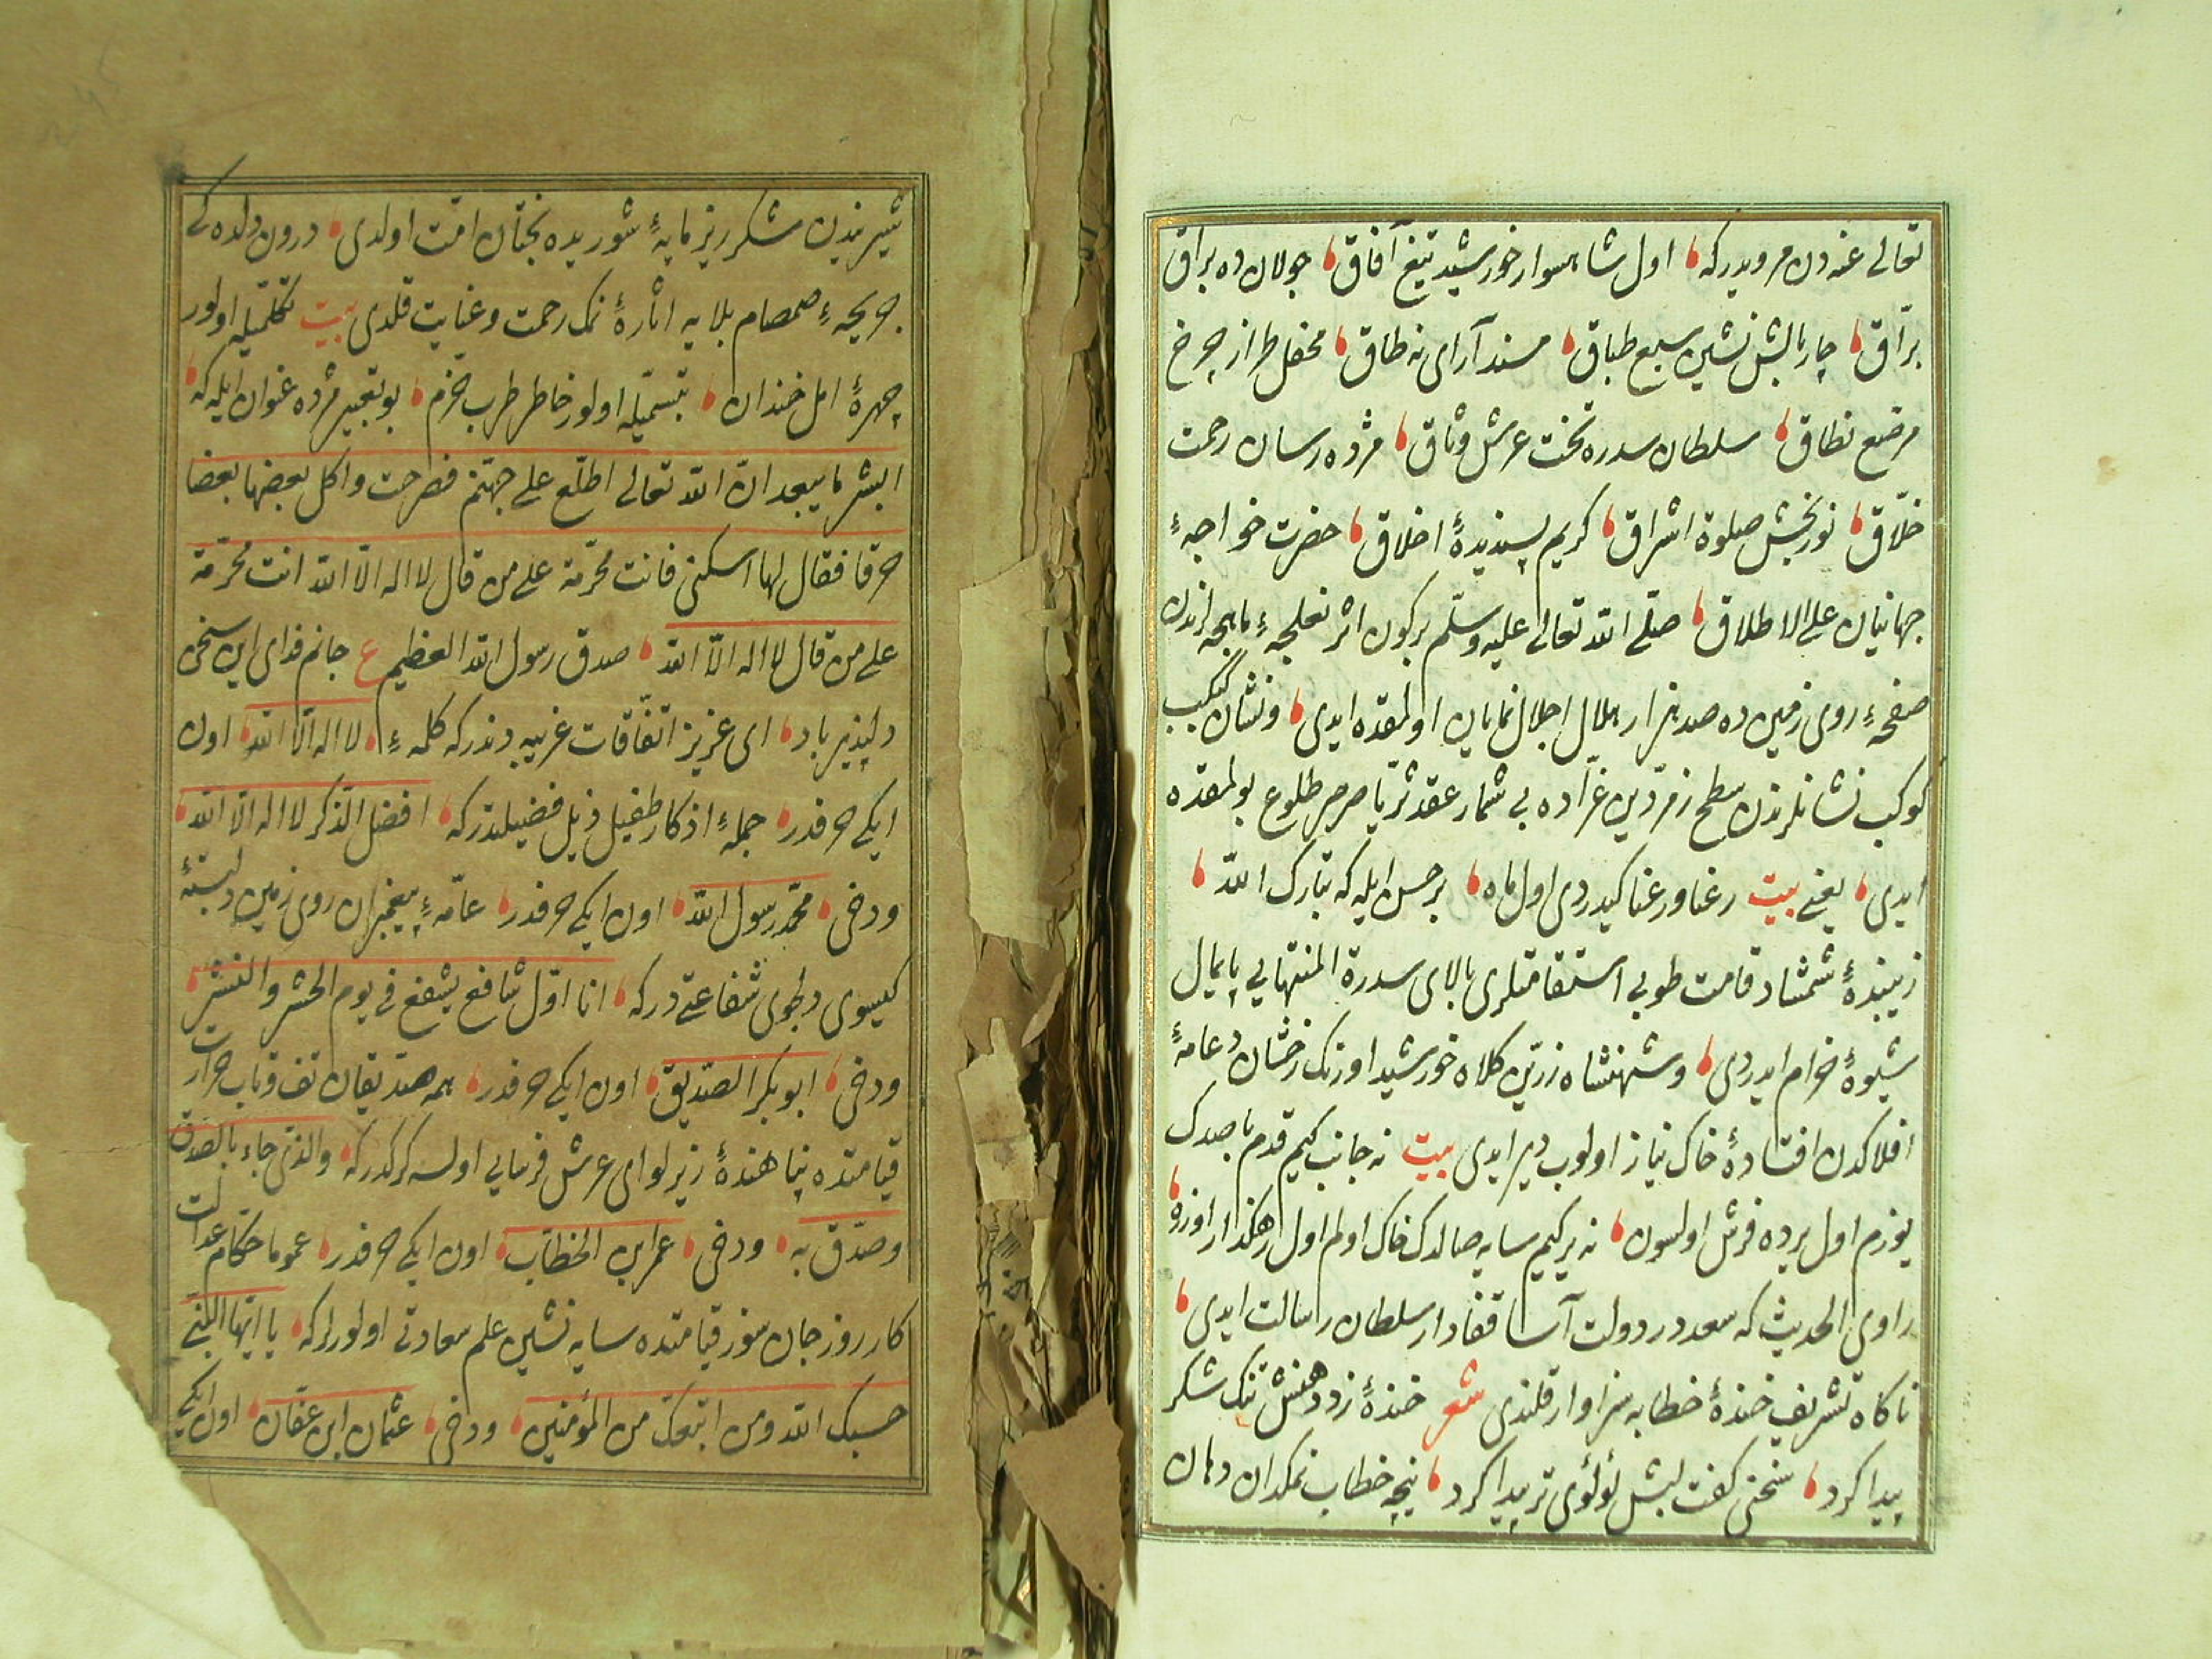 تعالی عنه دن مرویدر که اول شاهسوار خورشید تیغ آفاق جولان ده براق
برّاق چار بالش نشین سبع طباق مسند آرای نه طاق محفل طراز چرخ
مرصّع نطاق سلطان سدره تخت عرش وثاق مژده رسان رحمت
خلّاق نور بخش صلوة اشراق کریم پسندیدهٔ اخلاق حضرت خواجهٔ
جهانیان علی الاطلاق صلّی الله تعالی علیه وسلّم بر کون اثر نعلچهٔ ماهچه لرندن
صفحهٔ روی زمین ده صد هزار هلال اجلال نمایان اولمقده ایدی ونشان کبکب
کوکب نشانلرندن سطح زمرّدین غرّاده بی شمار عقد ثریّا صرصر طلوع بولمقده
ایدی یعنی بیت رعنا ورعنا کیدردی اول ماه برحسن ایله که تبارک الله
زیبندهٔ شمشاد قامت طوبی استقامتلری بالای سدرة المنتهایی پایمال
شیوهٔ خرام ایدردی وشهنشاه زرّین کلاه خورشید اورنک رخشان دعامهٔ
افلاکدن افتادهٔ خاک نیاز اولوب دیر ایدی بیت نه جانب کیم قدم باصدک
یوزم اول یرده فرش اولسون نه یر کیم سایه صالدک خاک اولم اول رهکذار اوزره
راوی الحدیث که سعد در دولت آسا قفادار سلطان رسالت ایدی
ناکاه تشریف خندهٔ خطابه سزاوار قلندی شعر خندهٔ زد دهنش تنک شکر
پیدا کرد سخنی کفت لبش لؤلؤی تر پیدا کرد نیچه خطاب نمکدان دهان
شیریندن شکرریز مایهٔ شوریده بختان امّت اولدی درون دلده کی
جریحهٔ صمصام بلایه اثارهٔ نمک رحمت وعنایت قلدی بیت تکلّمیله اولور
چهرهٔ امل خندان تبسّمیله اولور خاطر طرب خرّم بو تعبیر مژده عنوان ایله که
ابشر یا سعد انّ الله تعالی اطلع علی جهنّم فصرحت واکل بعضها بعضا
حرقا فقال لها اسکنی فانت محرّمة علی من قال لا اله الّا الله انت محرّمة
علی من قال لا اله الّا الله صدق رسول الله العظیم ع جانم فدای این سخن
دلپذیر باد ای عزیز اتّفاقات غریبه دندر که کلمهٔ لا اله الّا الله اون
ایکی حرفدر جملهٔ اذکار طفیل ذیل فضیلتدر که افضل الذّکر لا اله الّا الله
ودخی محمّد رسول الله اون ایکی حرفدر عامّهٔ پیغمبران روی زمین دلبستهٔ
کیسوی دلجوی شفاعتی در که انا اوّل شافع یشفع فی یوم الحشر والنشر
ودخی ابو بکر الصّدیق اون ایکی حرفدر همه صدّیقان تف وتاب حرارت
قیامتده پناهندهٔ زیر لوای عرش فرسایی اولسه کرکدر که والذی جاء بالصّدق
وصدّق به ودخی عمر ابن الخطاب اون ایکی حرفدر عموما حکّام عدالت
کار روز جان سوز قیامتده سایه نشین علم سعادتی اولورلر که یا ایّها النّبی
حسبک الله ومن اتبعک من المؤمنین ودخی عثمان ابن عفّان اون ایکی